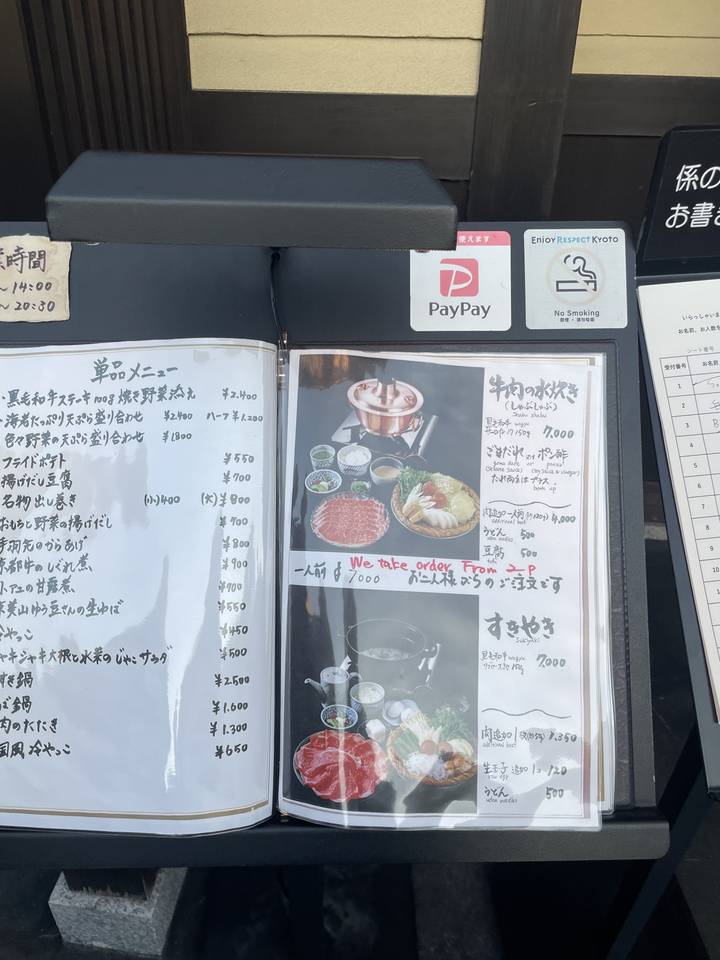 業時間
~ 14:00
~ 20:30
使えます
PayPay
ENJOY RESPECT KYOTO
No Smoking
係の
お書き
いらっしゃいま
お名前、お人数を
シート番号
受付番号
お名
1
2
3
4
5
6
7
8
9
10
単品メニュー
・黒毛和牛ステーキ100g 焼き野菜添え ¥2.400
・海老たっぷり天ぷら盛り合わせ ¥2.400 ハーフ ¥1.200
色々野菜の天ぷら盛り合わせ ¥1800
フライドポテト ¥550
揚げだし豆腐 ¥700
名物出し巻き (小)400 (大)¥800
おもちと野菜の揚げだし ¥700
手羽先のからあげ ¥800
京都牛のしぐれ煮 ¥900
の甘露煮 ¥700
葉山ゆう豆さんの生ゆば ¥550
やっこ ¥450
シャキシャキ大根と水菜のじゃこサラダ ¥500
すき鍋 ¥2.500
ば鍋 ¥1.600
肉のたたき ¥1.300
国風冷やっこ ¥650
牛肉の水炊き
(しゃぶしゃぶ)
Shabu shabu
黒毛和牛 wagyu
150g 7,000
ごまだれ or ポン酢
たれ両方はプラス
肉追加一人前 4,000
additional beef
うどん 500
udon noodles
豆腐 500
tofu
We take order From 2-P
一人前 ¥7000 お二人様からのご注文です
すきやき
Sukiyaki
黒毛和牛 wagyu
150g 7,000
肉追加 1,350
additional beef
生玉子 追加 1コ 120
raw egg
うどん 500
udon noodles